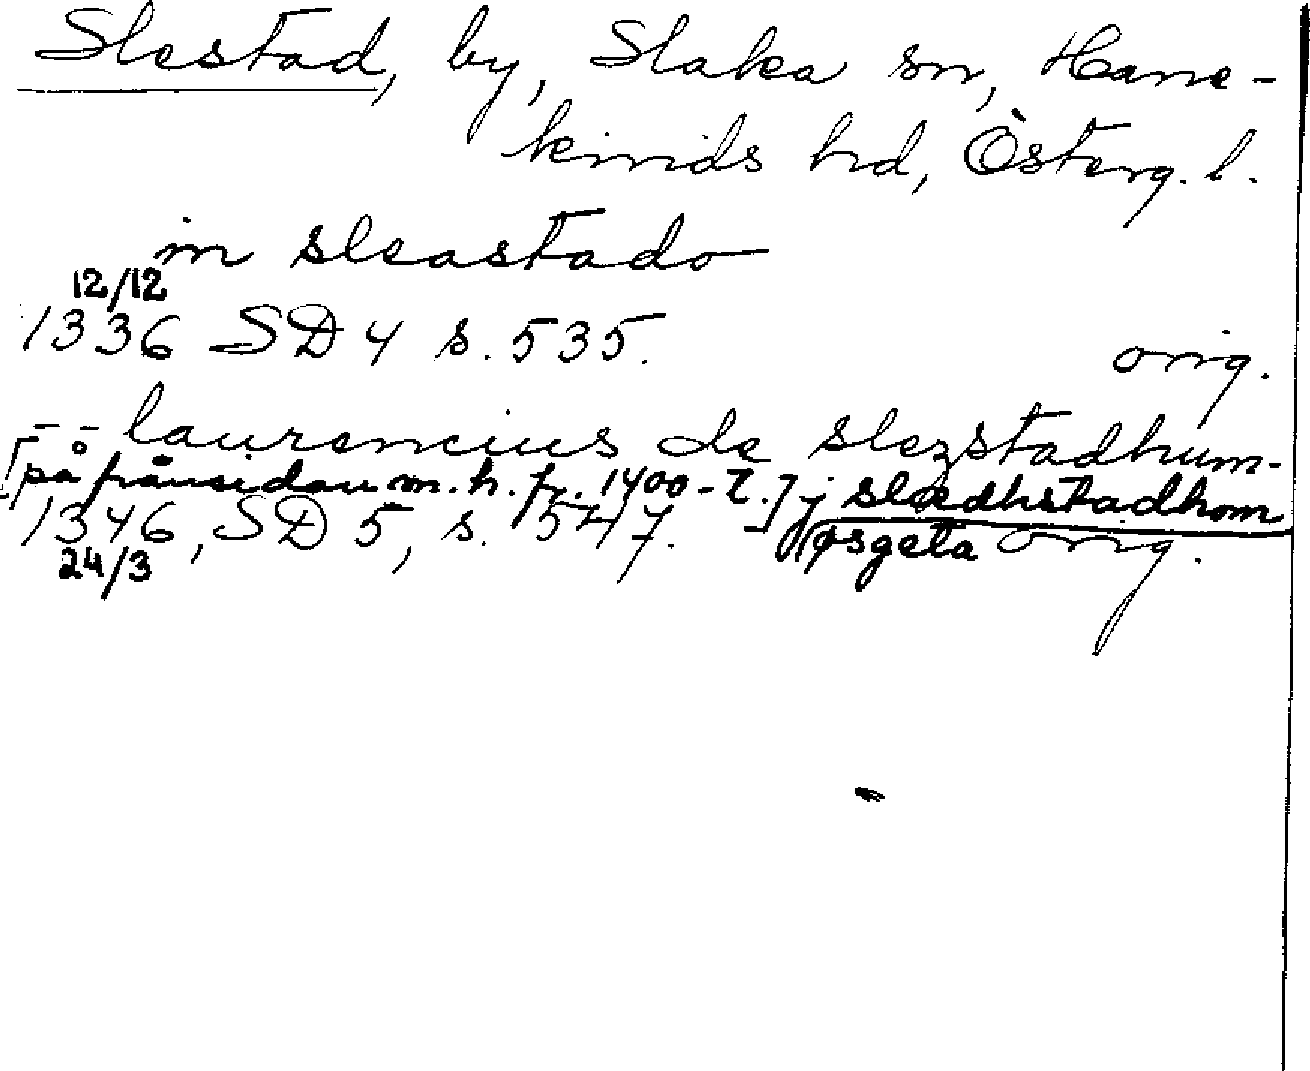 Slestad, by, Slaka sn, Hane-
kinds hd, Österg. l.
in sleastado
12/12
1336 SD 4 s. 535. orig.
-- laurencius de slezstadhum-
[på frånsidan m. h. fr. 1400-t.] j slædhstadhom
1346, SD 5, s. 547. øsgeta orig.
24/3